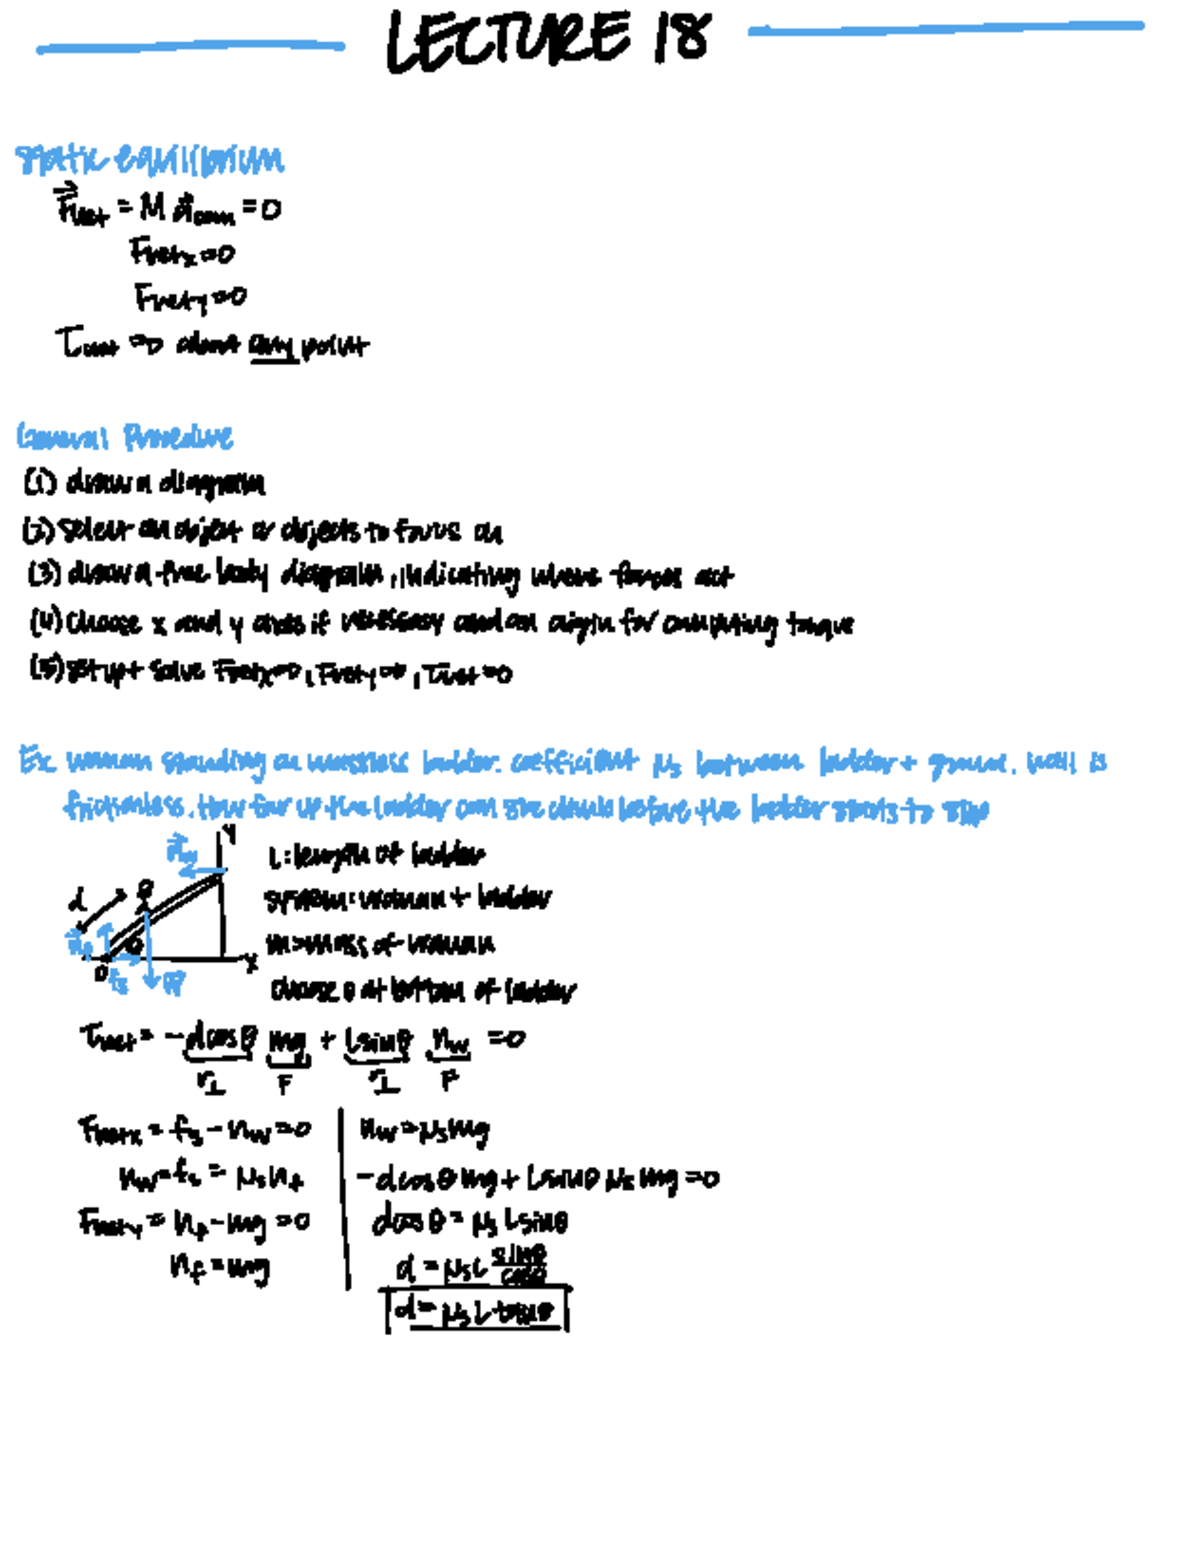 LECTURE 18
static equilibrium
F⃗net = M a⃗com = 0
Fnetx = 0
Fnety = 0
τnet = 0 about any point
General Procedure
(1) draw a diagram
(2) select an object or objects to focus on
(3) draw a free body diagram, indicating where forces act
(4) choose x and y axes if necessary and an origin for computing torque
(5) set up + solve Fnetx=0, Fnety=0, τnet=0
Ex. woman standing on massless ladder. coefficient μs between ladder + ground. wall is
frictionless. How far up the ladder can she climb before the ladder starts to slip
y
n⃗w
L: length of ladder
d
system: woman + ladder
n⃗f
θ
m = mass of woman
x
0
fs
w⃗
choose 0 at bottom of ladder
τnet = -dcosθ mg + Lsinθ nw = 0
r⊥ F r⊥ F
Fnetx = fs - nw = 0
nw = fs = μsnf
Fnety = nf - mg = 0
nf = mg
nw = μsmg
-dcosθ mg + Lsinθ μs mg = 0
dcosθ = μs Lsinθ
d = μsL sinθ/cosθ
d = μs L tanθ